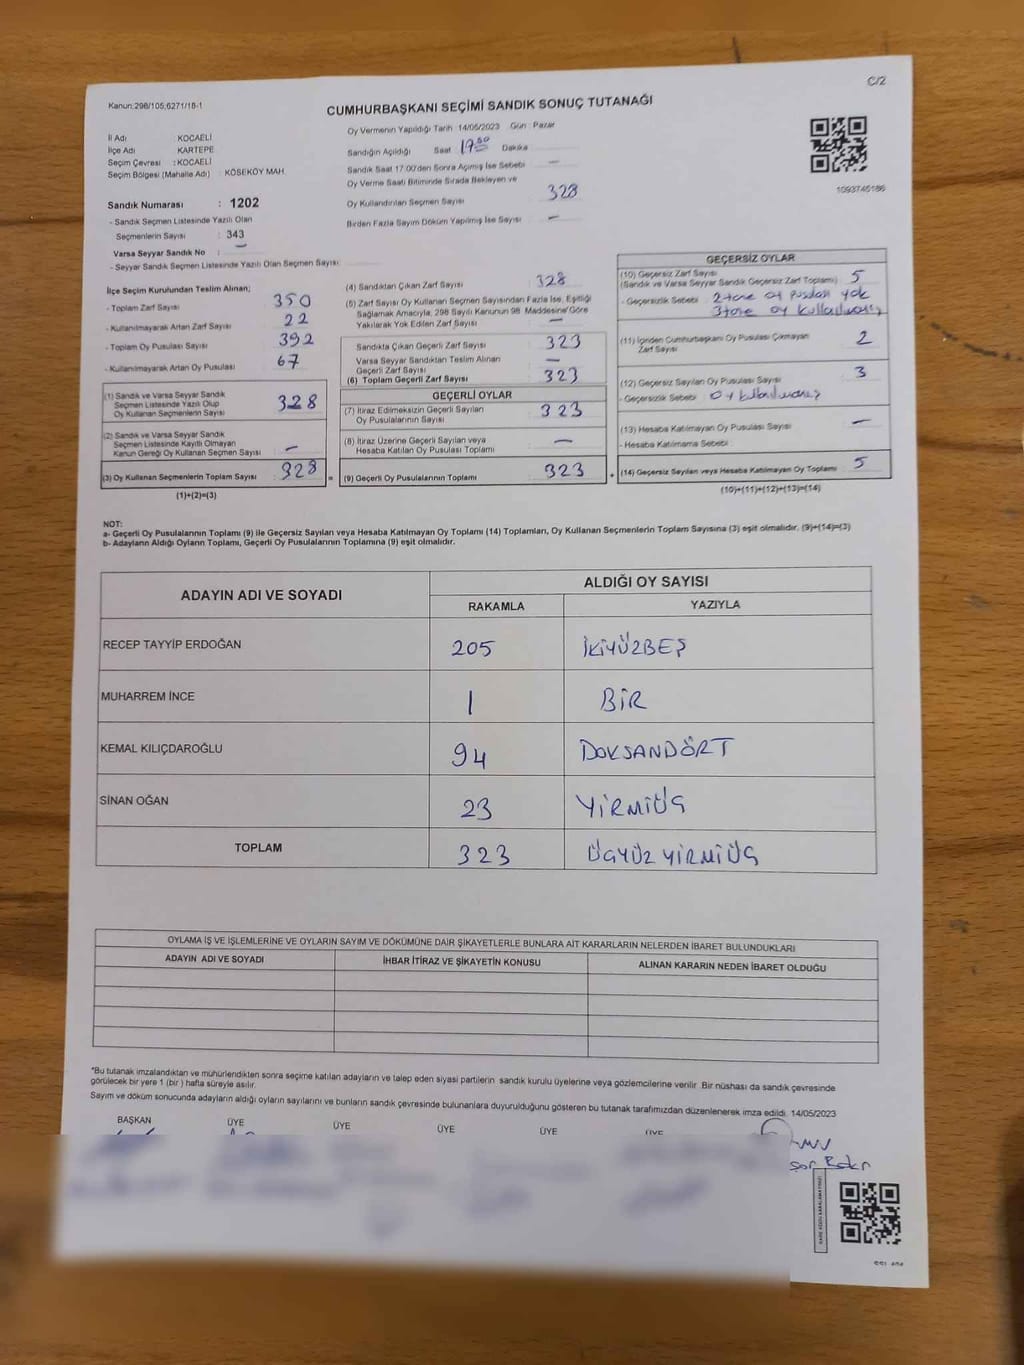 C/2
Kanun:298/105,6271/18-1
CUMHURBAŞKANI SEÇİMİ SANDIK SONUÇ TUTANAĞI
Oy Vermenin Yapıldığı Tarih 14/05/2023 Gün : Pazar
İl Adı KOCAELİ
İlçe Adı KARTEPE
Seçim Çevresi : KOCAELİ
Seçim Bölgesi (Mahalle Adı) : KÖSEKÖY MAH.
Sandığın Açıldığı Saat Dakika
Sandık Saat 17:00'den Sonra Açılmış İse Sebebi —
Oy Verme Saati Bitiminde Sırada Bekleyen ve
Oy Kullandırılan Seçmen Sayısı 328
Birden Fazla Sayım Döküm Yapılmış İse Sayısı —
1093745186
Sandık Numarası : 1202
- Sandık Seçmen Listesinde Yazılı Olan
Seçmenlerin Sayısı : 343
Varsa Seyyar Sandık No : —
- Seyyar Sandık Seçmen Listesinde Yazılı Olan Seçmen Sayısı:
İlçe Seçim Kurulundan Teslim Alınan;
- Toplam Zarf Sayısı 350
- Kullanılmayarak Artan Zarf Sayısı 22
- Toplam Oy Pusulası Sayısı 392
- Kullanılmayarak Artan Oy Pusulası 67
(1) Sandık ve Varsa Seyyar Sandık
Seçmen Listesinde Yazılı Olup
Oy Kullanan Seçmenlerin Sayısı 328
(2) Sandık ve Varsa Seyyar Sandık
Seçmen Listesinde Kayıtlı Olmayan
Kanun Gereği Oy Kullanan Seçmen Sayısı —
(3) Oy Kullanan Seçmenlerin Toplam Sayısı 328
(1)+(2)=(3)
(4) Sandıktan Çıkan Zarf Sayısı 328
(5) Zarf Sayısı Oy Kullanan Seçmen Sayısından Fazla İse, Eşitliği
Sağlamak Amacıyla, 298 Sayılı Kanunun 98. Maddesine Göre
Yakılarak Yok Edilen Zarf Sayısı —
Sandıkta Çıkan Geçerli Zarf Sayısı 323
Varsa Seyyar Sandıktan Teslim Alınan
Geçerli Zarf Sayısı —
(6) Toplam Geçerli Zarf Sayısı 323
GEÇERLİ OYLAR
(7) İtiraz Edilmeksizin Geçerli Sayılan
Oy Pusulalarının Sayısı 323
(8) İtiraz Üzerine Geçerli Sayılan veya
Hesaba Katılan Oy Pusulası Toplamı —
= (9) Geçerli Oy Pusulalarının Toplamı 323
GEÇERSİZ OYLAR
(10) Geçersiz Zarf Sayısı
(Sandık ve Varsa Seyyar Sandık Geçersiz Zarf Toplamı) 5
- Geçersizlik Sebebi : 2 tane oy pusulası yok
3 tane oy kullanılmamış
(11) İçinden Cumhurbaşkanı Oy Pusulası Çıkmayan
Zarf Sayısı 2
(12) Geçersiz Sayılan Oy Pusulası Sayısı 3
- Geçersizlik Sebebi : oy kullanılmamış
(13) Hesaba Katılmayan Oy Pusulası Sayısı —
- Hesaba Katılmama Sebebi :
+ (14) Geçersiz Sayılan veya Hesaba Katılmayan Oy Toplamı 5
(10)+(11)+(12)+(13)=(14)
NOT:
a- Geçerli Oy Pusulalarının Toplamı (9) ile Geçersiz Sayılan veya Hesaba Katılmayan Oy Toplamı (14) Toplamları, Oy Kullanan Seçmenlerin Toplam Sayısına (3) eşit olmalıdır. (9)+(14)=(3)
b- Adayların Aldığı Oyların Toplamı, Geçerli Oy Pusulalarının Toplamına (9) eşit olmalıdır.
ADAYIN ADI VE SOYADI ALDIĞI OY SAYISI
RAKAMLA YAZIYLA
RECEP TAYYİP ERDOĞAN 205 İKİYÜZBEŞ
MUHARREM İNCE 1 BİR
KEMAL KILIÇDAROĞLU 94 DOKSANDÖRT
SİNAN OĞAN 23 YİRMİÜÇ
TOPLAM 323 ÜÇYÜZ YİRMİÜÇ
OYLAMA İŞ VE İŞLEMLERİNE VE OYLARIN SAYIM VE DÖKÜMÜNE DAİR ŞİKAYETLERLE BUNLARA AİT KARARLARIN NELERDEN İBARET BULUNDUKLARI
ADAYIN ADI VE SOYADI İHBAR İTİRAZ VE ŞİKAYETİN KONUSU ALINAN KARARIN NEDEN İBARET OLDUĞU
*Bu tutanak imzalandıktan ve mühürlendikten sonra seçime katılan adayların ve talep eden siyasi partilerin sandık kurulu üyelerine veya gözlemcilerine verilir. Bir nüshası da sandık çevresinde
görülecek bir yere 1 (bir ) hafta süreyle asılır.
Sayım ve döküm sonucunda adayların aldığı oyların sayılarını ve bunların sandık çevresinde bulunanlara duyurulduğunu gösteren bu tutanak tarafımızdan düzenlenerek imza edildi. 14/05/2023
BAŞKAN ÜYE ÜYE ÜYE ÜYE ÜYE